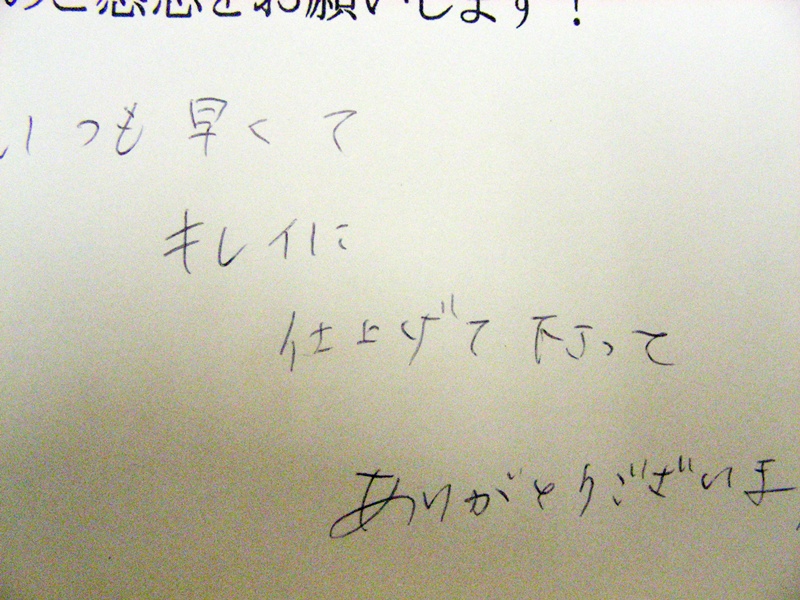 のご感想をお願いします!
いつも早くて
キレイに
仕上げて下さって
ありがとうございま